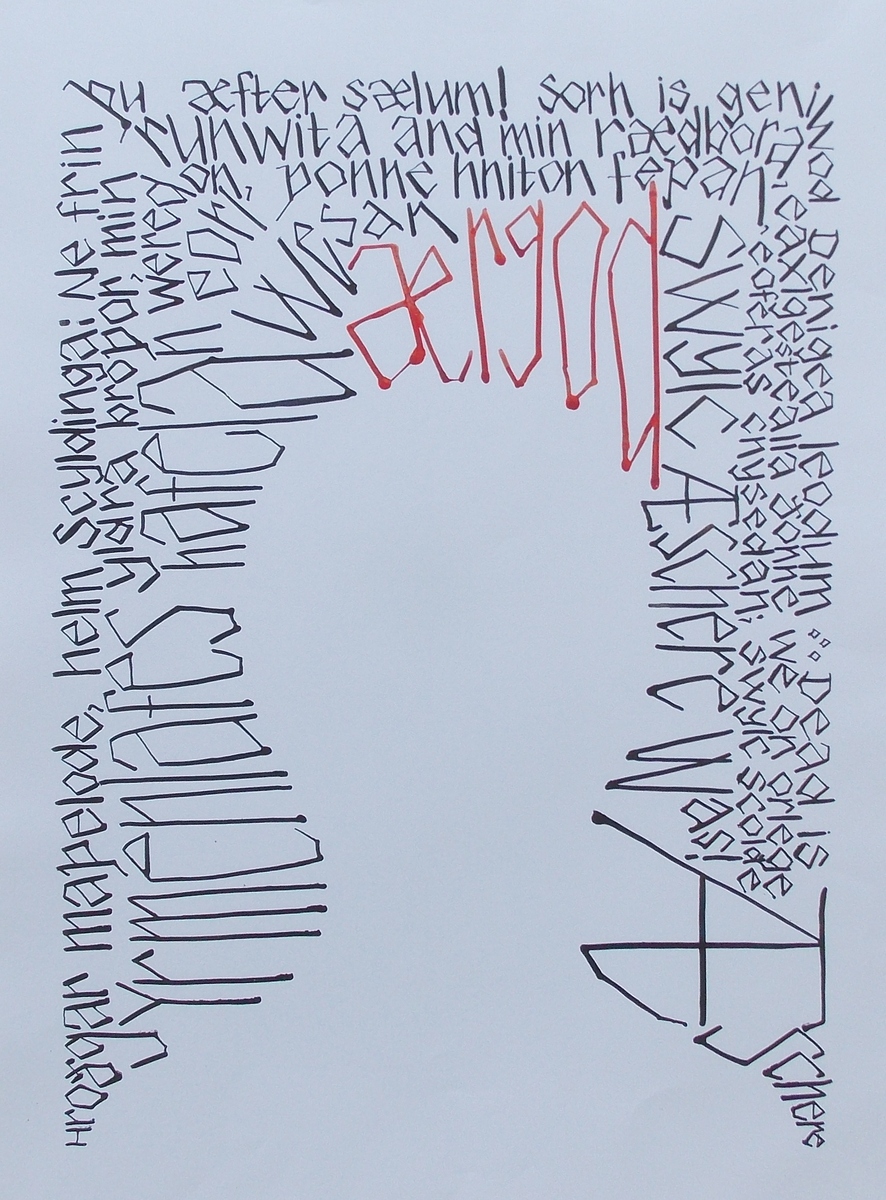 Hroðgar maþelode, helm Scyldinga: Ne frin
þu æfter sælum! Sorh is geni
wod Denigea leodum :: Dead is
Æschere
Yrmenlafes
yldra broþor, min
runwita and min rædbora,
eaxlgestealla ðonne we on orlege
hafelan
wered
on, þonne hniton feþan,
swylc scolde
eorl
wesan
ærgod
swylc Æschere wæs!